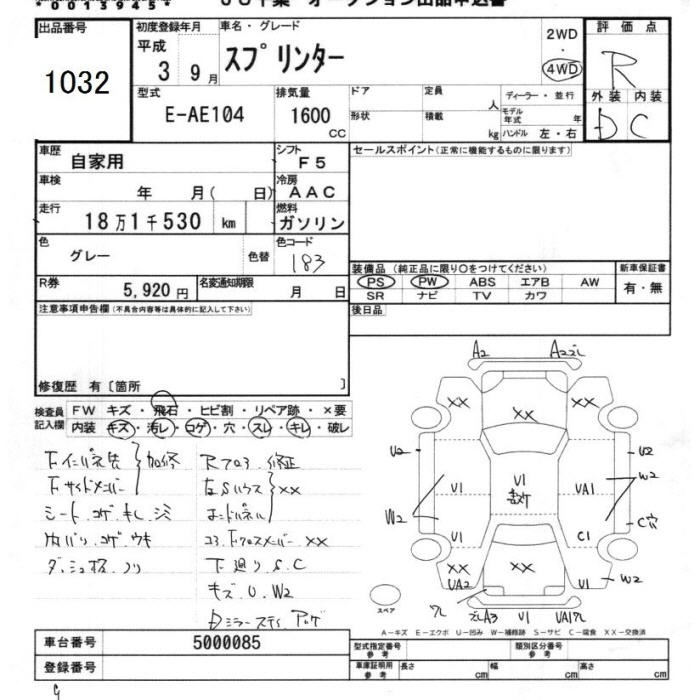 *00139454*
出品番号
1032
初度登録年月
平成
3 9月
車名・グレード
スプリンター
2WD
・
4WD
評価点
R
外装 内装
D C
型式
E-AE104
排気量
1600
CC
ドア
定員
人
ディーラー・並行
形状
積載
kg
モデル年式
年
ハンドル 左・右
車歴
自家用
シフト
F5
セールスポイント(正常に機能するものに限ります)
車検
年 月( 日)
冷房
AAC
走行
18万1千530 km
燃料
ガソリン
色
グレー
色替
色コード
183
R券
5,920円
名変通知期限
月 日
装備品(純正品に限り○をつけてください)
PS PW ABS エアB AW
SR ナビ TV カワ
新車保証書
有・無
注意事項申告欄(不具合内容等は具体的に記入して下さい)
後日品
修復歴 有〔箇所 〕
検査員記入欄
FW キズ・飛石・ヒビ割・リペア跡・×要
内装 キズ・汚レ・コゲ・穴・スレ・キレ・破レ
シート.コゲ.キレ.シミ
内バリ.コゲ.ウキ
××
コア下クロスメンバー ××
下廻り.S.C
キズ.U.W2
A2
××
××
U2
U1
U1
UA1
W2
U2
W2
C穴
U1
C1
××
UA2
××
U1
W2
スペア
A3
U1
A-キズ E-エクボ U-凹み W-補修跡 S-サビ C-腐食 XX-交換済
車台番号
5000085
登録番号
型式指定番号
参考
類別区分番号
参考
車庫証明用
参考
長さ cm
幅 cm
高さ cm